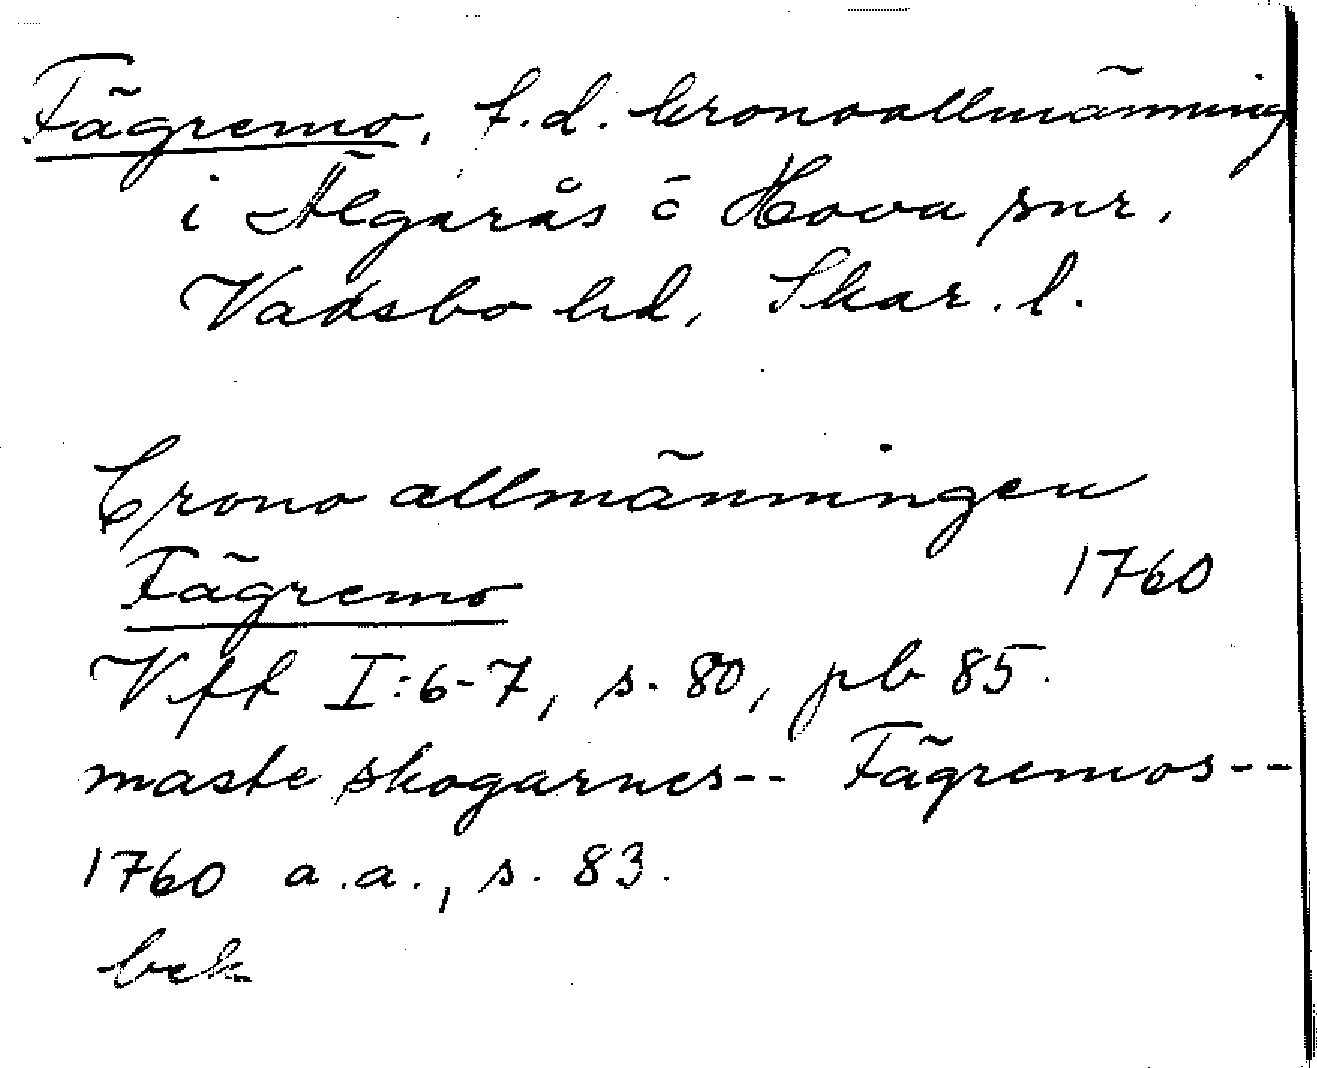 Fägremo, f.d. kronoallmänning
i Älgarås o Hova snr,
Vadsbo hd, Skar. l.
Crono allmänningen
Fägremo 1760
Vfl I:6-7, s. 80, pb 85.
maste skogarnes -- Fägremos --
1760 a.a., s. 83.
bek